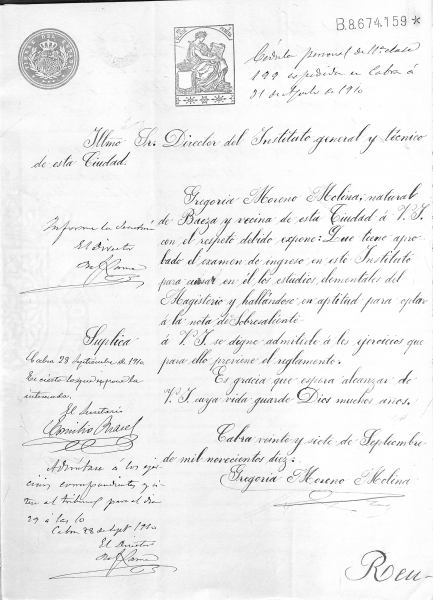 B.8.674.159*
Cédula personal de 11ª clase
199 expedida en Cabra á
21 de Agosto de 1910
Illmo Sr. Director del Instituto general y técnico
de esta Ciudad.
Gregoria Moreno Molina, natural
de Baeza y vecina de esta Ciudad á V.S.
con el respeto debido expone: Que tiene apro-
bado el examen de ingreso en este Instituto
para cursar en él los estudios elementales del
Magisterio y hallándose en aptitud para optar
á la nota de Sobresaliente
á V.S. se digne admitirle á los ejercicios que
para ello previene el reglamento.
Es gracia que espera alcanzar de
V.S. cuya vida guarde Dios muchos años.
Cabra veinte y siete de Septiembre
de mil novecientos diez.
Gregoria Moreno Molina
Informe la
El Director
Suplica
Cabra 28 Septiembre de 1910
Es cierto lo que expone la
interesada.
El Secretario
Admítase á los ejer-
cicios correspondientes y ci-
tese al tribunal para el dia
29 á las 10
Cabra 28 Sept 1910
El Director
Reu-